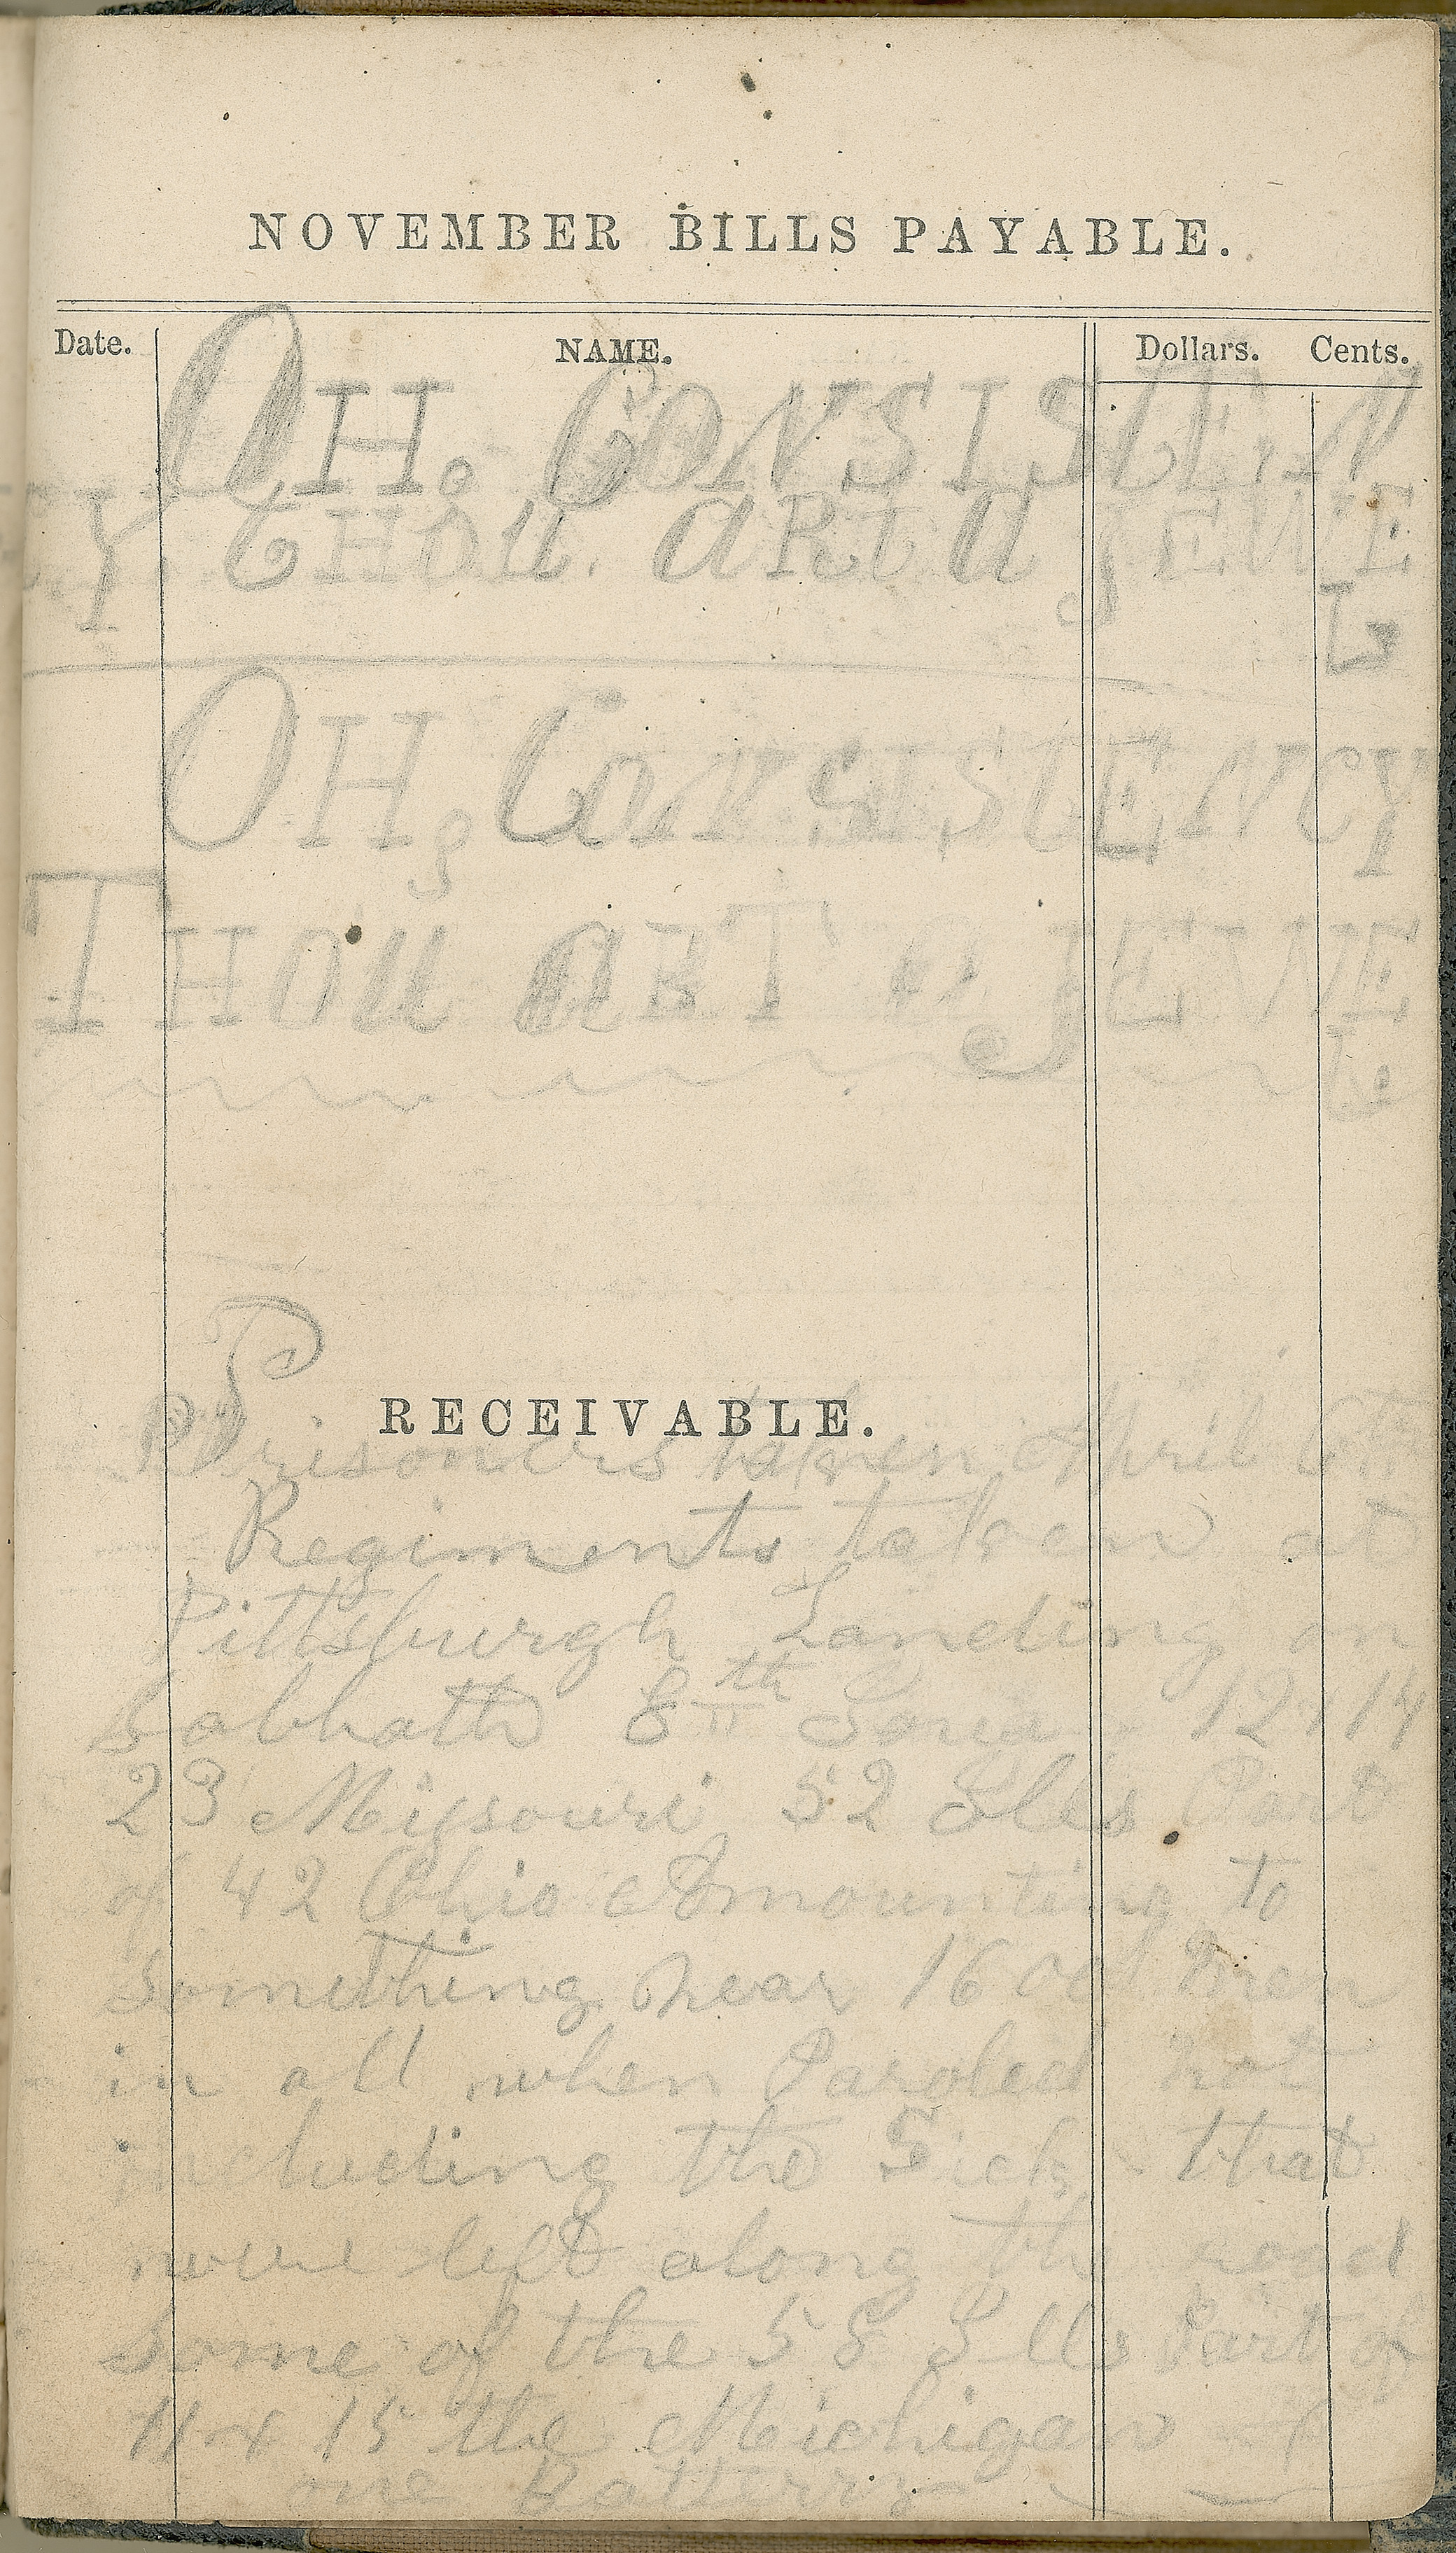 NOVEMBER BILLS PAYABLE.
Date. NAME. Dollars. Cents.
OH. CONSISTEN
CY. THOU. ART A JEWE
L
OH, CONSISTENCY
THOU ART A JEWE
L.
RECEIVABLE.
Prisoners taken April 6th
Regiments taken at
Pittsburgh Landing on
Sabbath 8th Iowa 12 14
23 Missouri 52 Ills Part
of 42 Ohio Amounting to
Something near 1600 men
in all when Paroled not
including the Sick that
were left along the road
Some of the 58 Ills Part of
11 & 15 the Michigan
one Battery